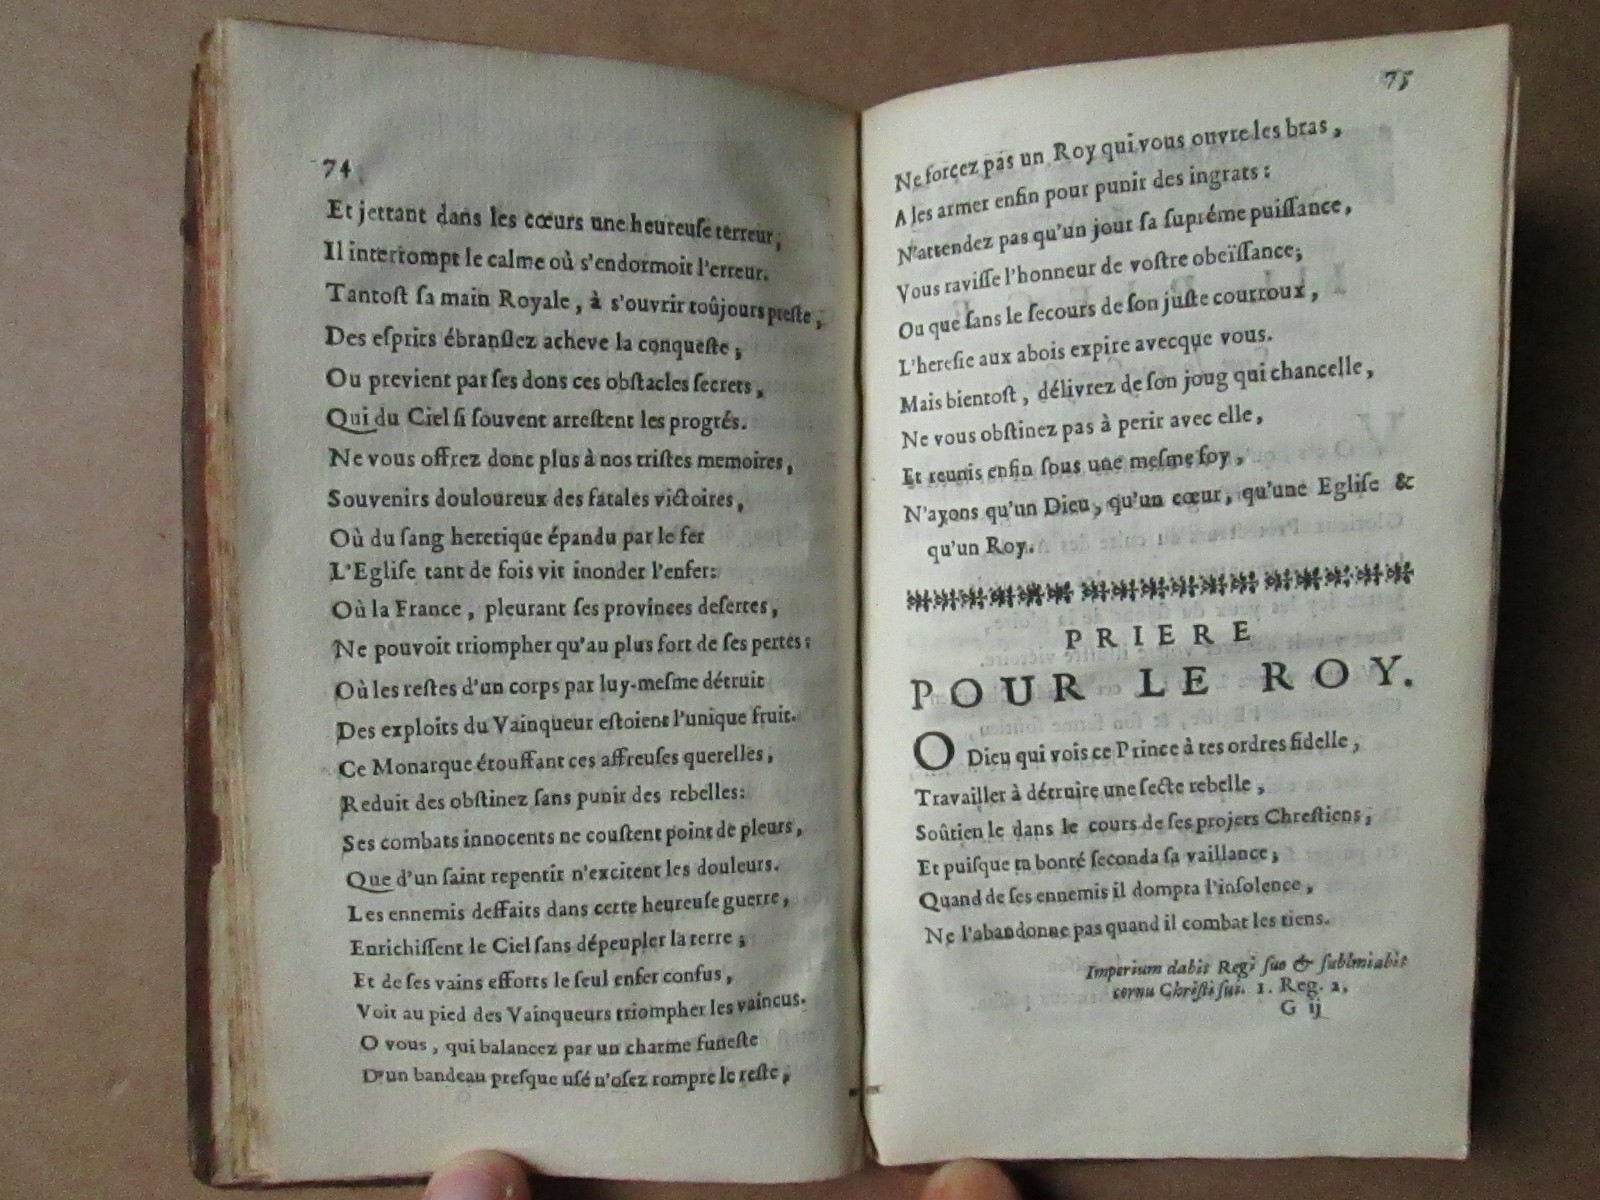 74
Et jettant dans les cœurs une heureuſe terreur,
Il interrompt le calme où s'endormoit l'erreur.
Tantoſt ſa main Royale, à s'ouvrir toûjours preſte,
Des eſprits ébranſlez acheve la conqueſte;
Ou previent par ſes dons ces obſtacles ſecrets,
Qui du Ciel ſi ſouvent arreſtent les progrés.
Ne vous offrez donc plus à nos triſtes memoires,
Souvenirs douloureux des fatales victoires,
Où du ſang heretique épandu par le fer
L'Egliſe tant de fois vit inonder l'enfer:
Où la France, pleurant ſes provinces deſertes,
Ne pouvoit triompher qu'au plus fort de ſes pertes:
Où les reſtes d'un corps par luy-meſme détruit
Des exploits du Vainqueur eſtoient l'unique fruit.
Ce Monarque étouffant ces affreuſes querelles,
Reduit des obſtinez ſans punir des rebelles:
Ses combats innocents ne couſtent point de pleurs,
Que d'un ſaint repentir n'excitent les douleurs.
Les ennemis deffaits dans cette heureuſe guerre,
Enrichiſſent le Ciel ſans dépeupler la terre;
Et de ſes vains efforts le ſeul enfer confus,
Voit au pied des Vainqueurs triompher les vaincus.
O vous, qui balancez par un charme funeſte
D'un bandeau preſque uſé n'oſez rompre le reſte,
75
Ne forcez pas un Roy qui vous ouvre les bras,
A les armer enfin pour punir des ingrats:
N'attendez pas qu'un jour ſa ſupréme puiſſance,
Vous raviſſe l'honneur de voſtre obeïſſance;
Ou que ſans le ſecours de ſon juſte courroux,
L'hereſie aux abois expire avecque vous.
Mais bientoſt, délivrez de ſon joug qui chancelle,
Ne vous obſtinez pas à perir avec elle,
Et reunis enfin ſous une meſme foy,
N'ayons qu'un Dieu, qu'un cœur, qu'une Egliſe &
qu'un Roy.
PRIERE
POUR LE ROY.
O Dieu qui vois ce Prince à tes ordres fidelle,
Travailler à détruire une ſecte rebelle,
Soûtien le dans le cours de ſes projets Chreſtiens;
Et puiſque ta bonté ſeconda ſa vaillance;
Quand de ſes ennemis il dompta l'inſolence,
Ne l'abandonne pas quand il combat les tiens.
Imperium dabit Regi ſuo & ſublmiabit
cornu Chriſti ſui. 1. Reg. 2,
G ij